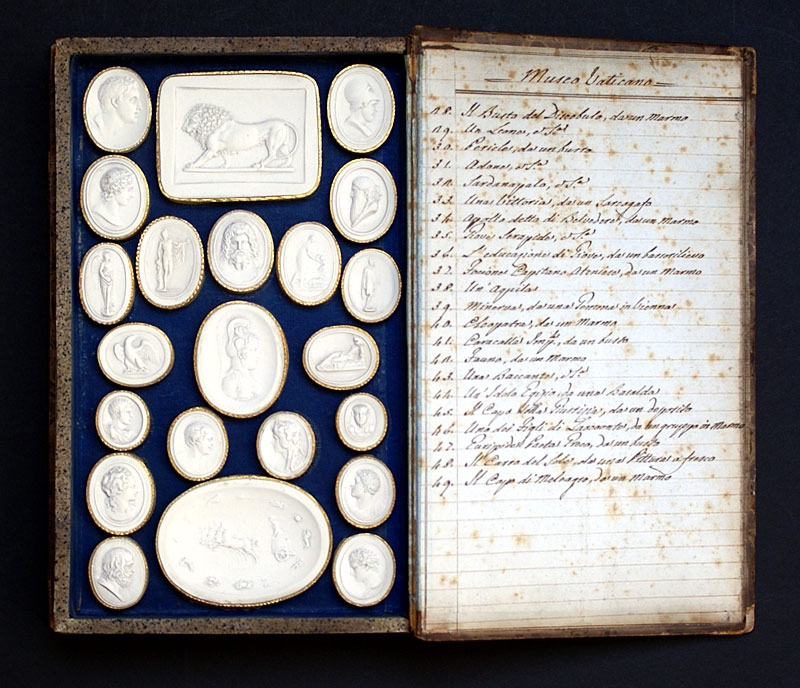 Museo Vaticano
28. Il Busto del Discobulo, da un Marmo
29. Un Leone, id.
30. Pericle, da un busto
31. Adone, id.
32. Sardanapalo, id.
33. Una Vittoria, da un Sarcogafo
34. Apollo detto di Belvedere, da un Marmo
35. Giove Serapide, id.
36. L'educazione di Giove, da un bassorilievo
37. Focione Capitano Ateniese, da un Marmo
38. Un' Aquila
39. Minerva, da una Gemma in Vienna
40. Cleopatra, da un Marmo
41. Caracalla Imp. da un busto
42. Fauno, da un Marmo
43. Una Baccante, id.
44. Un Idolo Egizio, da una Basalda
45. Il Capo della Giustizia, da un deposito
46. Uno dei Figli di Laocoonte, da un gruppo in Marmo
47. Euripide Poeta Greco, da un busto
48. Il Carro del Sole, da una Pittura a fresco
49. Il Capo di Meleagro, da un Marmo